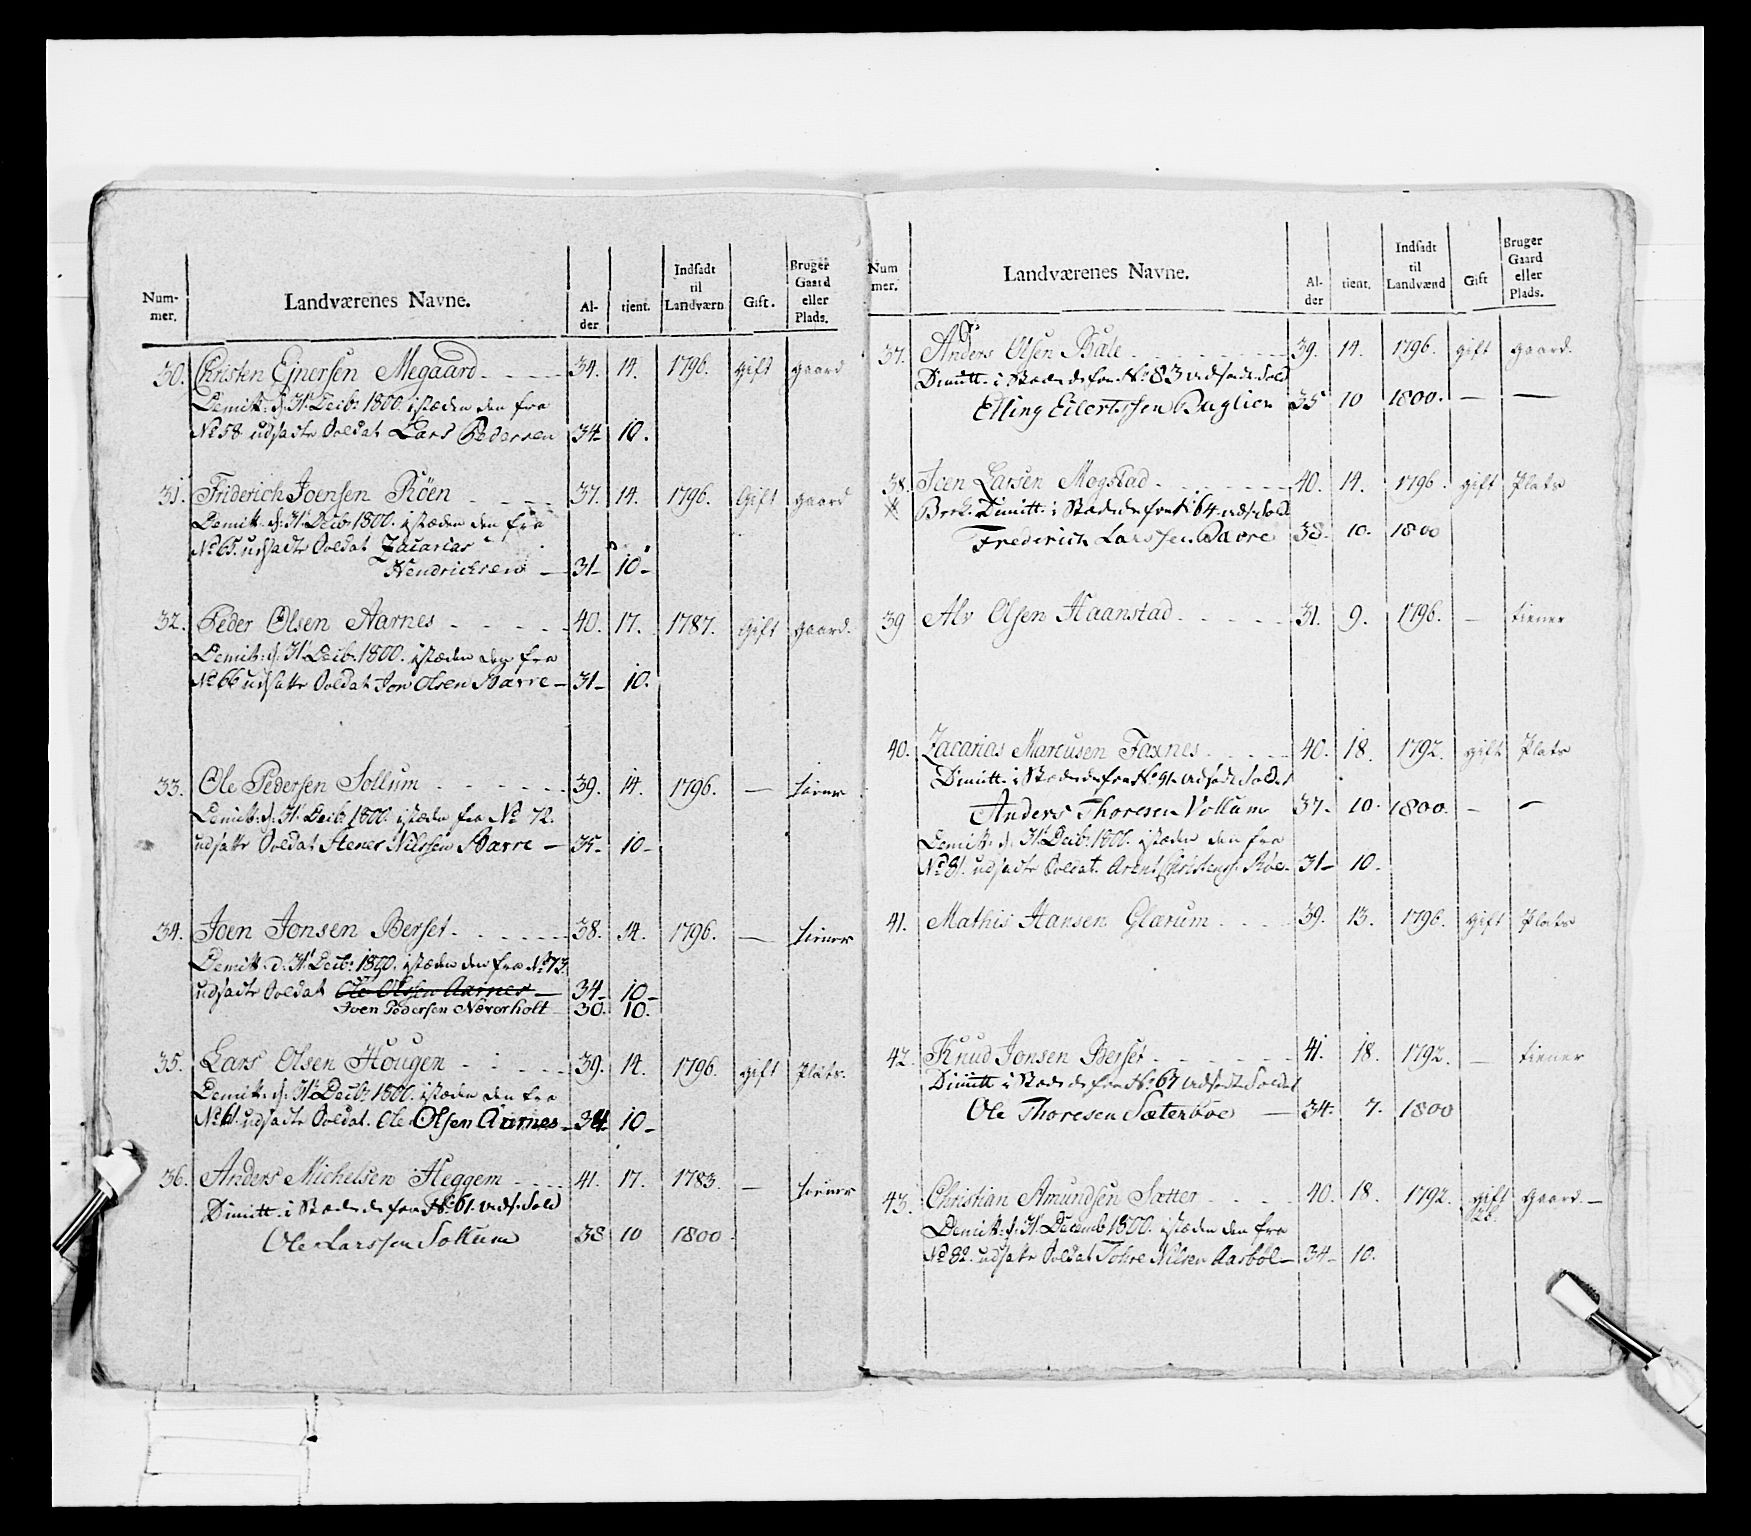 Num-
mer.
Landværenes Navne.
Al-
der
tient.
Indsadt
til
Landværn
Gift.
Bruger
Gaard
eller
Plads.
30. Christen Ejnersen Megaard 34. 14. 1796. gift gaard
Demit: d: 31t Decbr 1800. istæden den fra
No 58 udsadte Soldat Lars Pedersen 34 10.
31. Friderich Joensen Röen 37. 14. 1796. Gift gaard
Demit: d: 31t Decbr 1800. istæden den fra
No 65. udsadte Soldat Zacarias
Hendrichsen 31 10
32. Peder Olsen Aarnes 40. 17. 1787. gift gaard.
Demit: d: 31t Decbr 1800. istæden den fra
No 66 udsatte Soldat Jon Olsen Bævre 31 10.
33. Ole Pedersen Sollum 39. 14. 1796. — tiener
Demit: d: 31t Decbr 1800. istæden fra No 72.
udsatte Soldat Stener Nilssen Bævre 35 10
34. Joen Jonsen Berset 38. 14. 1796. — tiener
Demit: d. 31t Decbr 1800. istæden den fra No 73.
udsadte Soldat Ole Olssen Aarnes 34 10
Joen Pedersen Næverholt 30. 10.
35. Lars Olsen Hougen 39. 14. 1796. gift Plads.
Demit: d: 31t Decbr 1800. istæden den fra
No 61. udsadte Soldat. Ole Olsen Aarnes 34 10
36. Anders Michelsen Heggem 41. 17. 1783. — tiener
Dimitt: i Stædet for No 61. uds: Sold
Ole Larssen Sollum 38 10 1800.
Num
mer.
Landværenes Navne.
Al-
der
tient.
Indsadt
til
Landværd
Gift
Bruger
Gaard
eller
Plads.
37. Anders Olsen Bale 39. 14. 1796. gift gaard.
Dimitt: i Stædet for No 83 udsadte Sold
Elling Eilertssen Buglien 35 10 1800. — —
38. Joen Larsen Mogstad 40. 14. 1796. gift Plads
Dimitt: i Stædet for No 64. uds: Sold
Frederich Larssen Bævre 38. 10. 1800
39 Alv Olsen Haanstad 31. 9. 1796. — tiener
40. Zacarias Marcusen Foxnes 40. 18. 1792. gift Plads
Dimitt: i Stædet for No 91. udsadte Soldat
Anders Thoresen Vollum 37. 10. 1800. — —
Demit: d: 31t Decbr 1800. istæden den fra
No 81. udsadte Soldat. Arent Christens: Röe 31 10.
41. Mathis Hansen Glarum 39. 13. 1796. gift Plads
42. Knud Jonsen Berset 41. 18. 1792. — tiener
Dimitt i Stædet for No 67 udsadte Soldat
Ole Thoresen Sæterböe 34. 7. 1800
43. Christian Amundsen Sætter 40. 18. 1792. gift Gaard.
Demit: d: 31t Decemb 1800. istæden den fra
No 82. udsatte Soldat Tohre Nilsen Aasböl 34 10.